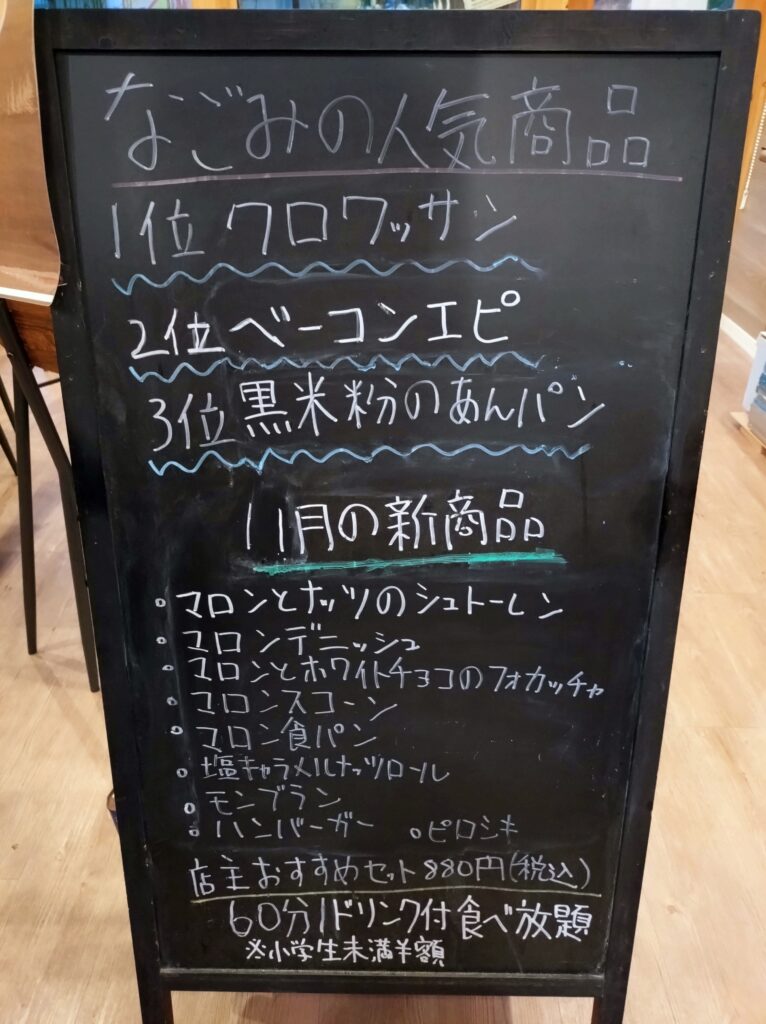 なごみの人気商品
1位クロワッサン
2位ベーコンエピ
3位黒米粉のあんパン
11月の新商品
○マロンとナッツのシュトーレン
○マロンデニッシュ
○マロンとホワイトチョコのフォカッチャ
○マロンスコーン
○マロン食パン
○塩キャラメルナッツロール
○モンブラン
○ハンバーガー ○ピロシキ
店主おすすめセット880円(税込)
60分1ドリンク付食べ放題
※小学生未満半額